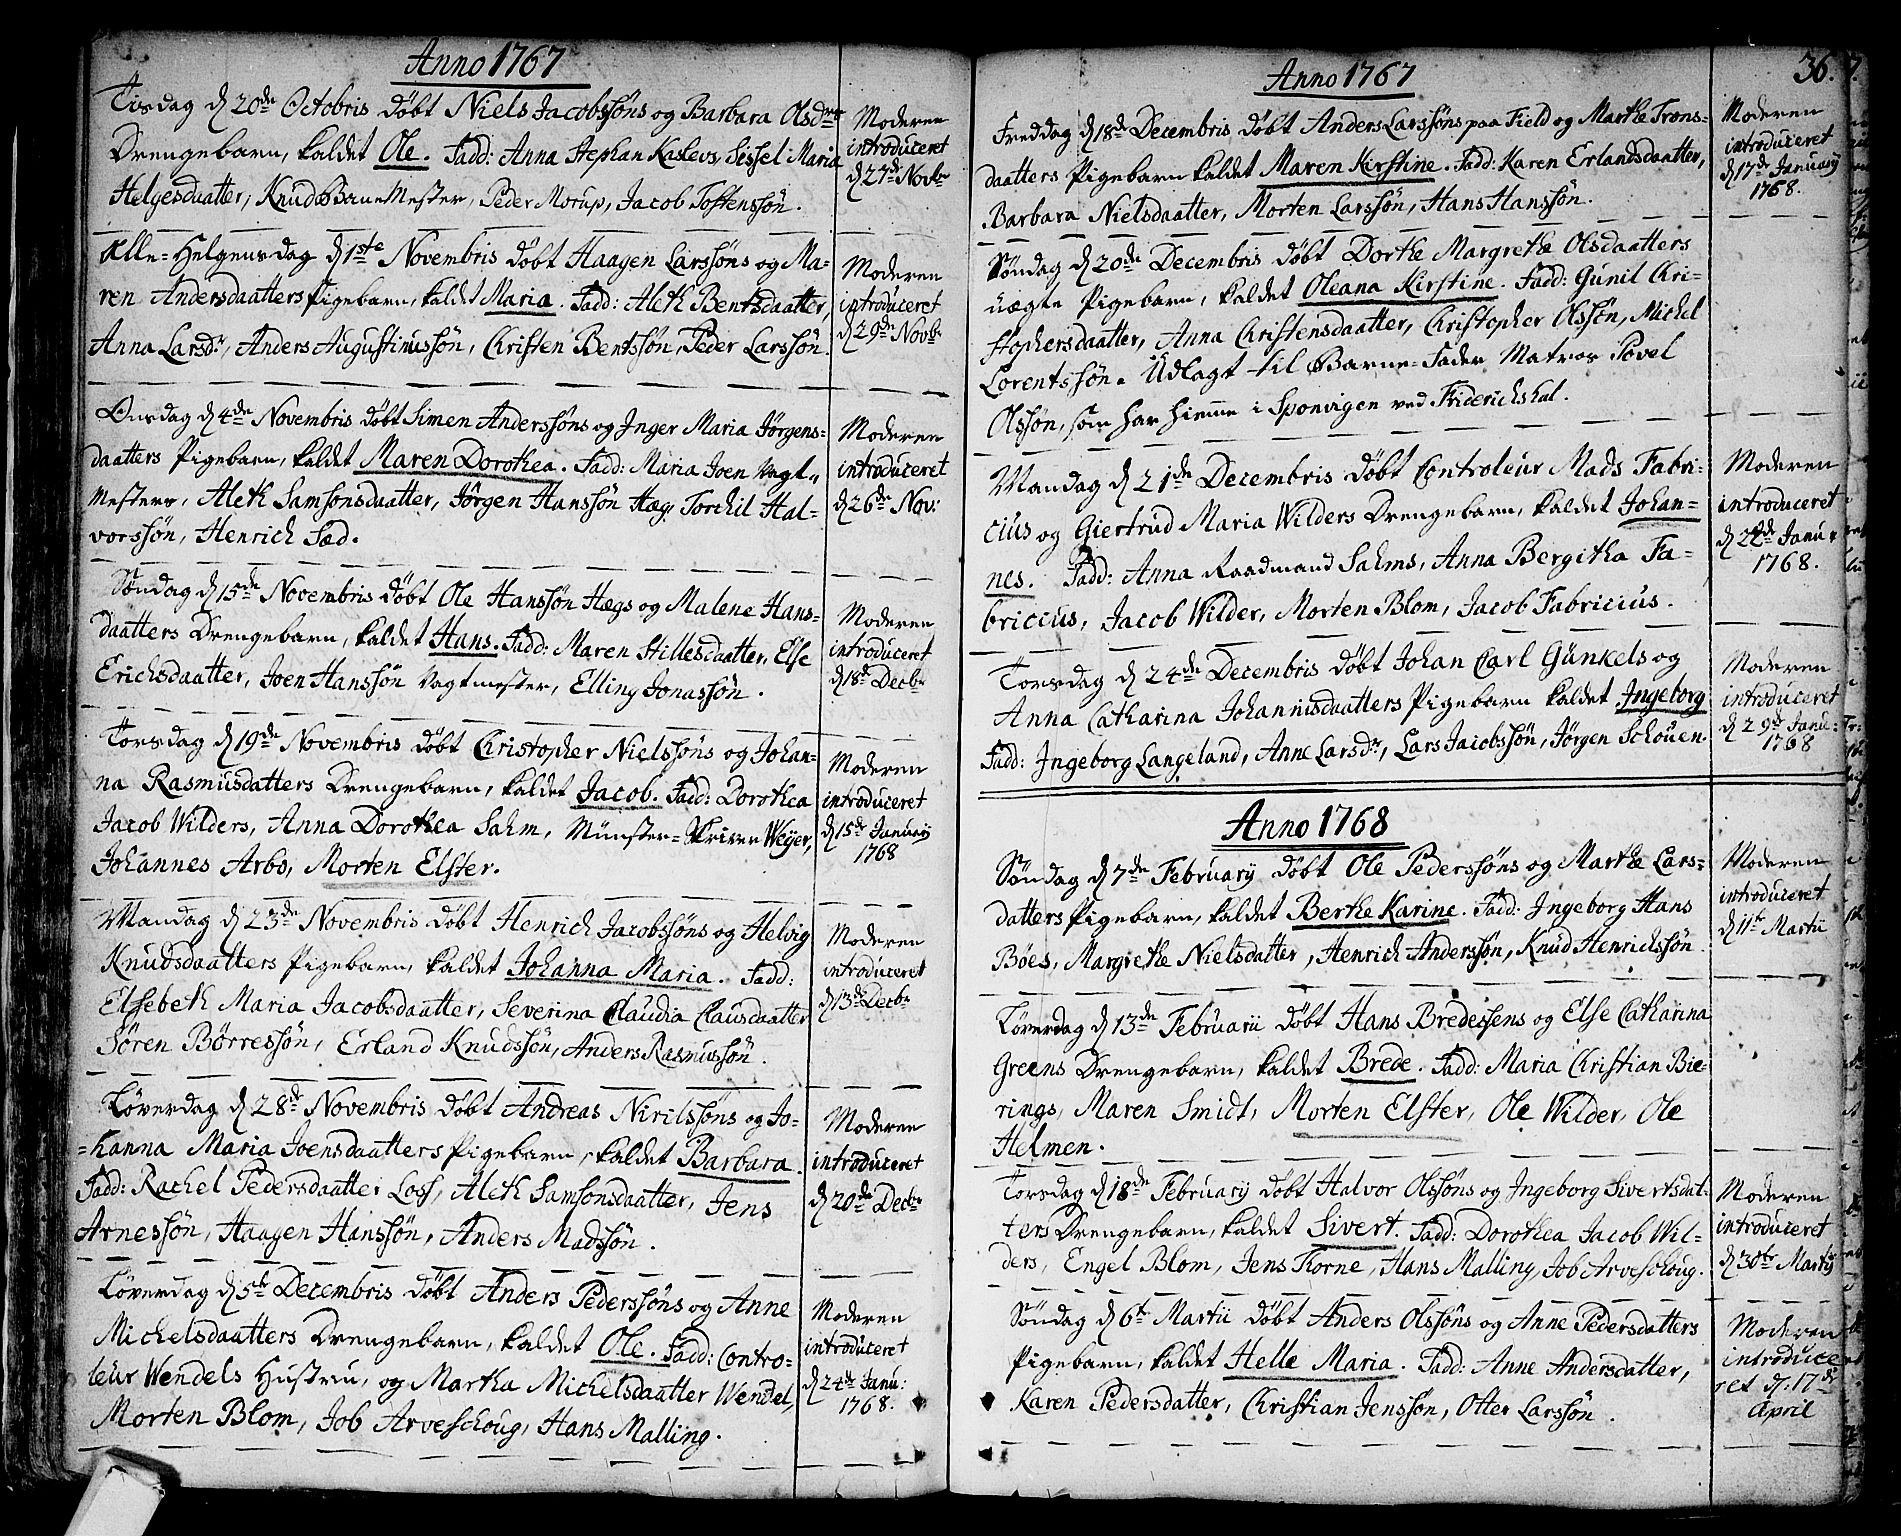 Anno 1767
Tisdag d 20de Octobris döbt Niels Jacobssöns og Barbara Olsdrs
Drengebarn, kaldet Ole. Fadd: Anna Stephan Kaslevs, Sissel Maria
Helgesdaatter, Knud BaneMester, Peder Morup, Jacob Tostenssön.
Moderen
introduceret
d 27de Novbr
Alle-Helgensdag d 1ste Novembris döbt Haagen Larssöns og Ma-
ren Andersdaatters Pigebarn, kaldet Maria. Fadd: Aleth Bentsdaatter,
Anna Larsdr, Anders Augustinussön, Christen Bentssön, Peder Larssön.
Moderen
introduceret
d 29de Novbr
Onsdag d 4de Novembris döbt Simen Anderssöns og Inger Maria Jörgens-
daatters Pigebarn, kaldet Maren Dorothea. Fadd: Maria Joen Vagt-
Mesters, Aleth Samsonsdaatter, Jörgen Hanssön Hæg, Torchil Hal-
vorssön, Henrich Sæd.
Moderen
introduceret
d 26de Nov:
Söndag d 15de Novembris döbt Ole Hanssön Hægs og Malene Hans-
daatters Drengebarn, kaldet Hans. Fadd: Maren Hillesdaatter, Else
Erichsdaatter, Joen Hanssön Vagtmester, Elling Jonassön.
Moderen
introduceret
d 18de Decbr
Torsdag d 19de Novembris döbt Christopher Nielssöns og Johan-
na Rasmusdatters Drengebarn, kaldet Jacob. Fadd: Dorothea
Jacob Wilders, Anna Dorothea Sahm, Münster-Skriver Weyer,
Johannes Arbo, Morten Elster.
Moderen
introduceret
d 15de Januarij
1768
Mandag d 23de Novembris döbt Henrich Jacobssöns og Helvig
Knudsdaatters Pigebarn, kaldet Johanna Maria. Fadd:
Elsebeth Maria Jacobsdaatter, Severina Claudia Clausdaatter
Sören Börressön, Erland Knudssön, Anders Rasmussön.
Moderen
introduceret
d 13de Decbr
Löverdag d 28de Novembris döbt Andreas Nirilssöns og Jo-
-hanna Maria Joensdaatters Pigebarn, kaldet Barbara.
Fadd: Rachel Pedersdaatter Loss, Aleth Samsonsdaatter, Jens
Arnessön, Haagen Hanssön, Anders Madssön.
Moderen
introduceret
d 20de Decbr
Löverdag d 5te Decembris döbt Anders Pederssöns og Anne
Michelsdaatters Drengebarn, kaldet Ole. Fadd: Contro-
leur Wendels Hustru, og Martha Michelsdaatter Wendel,
Morten Blom, Job Arveschoug, Hans Malling.
Moderen
introduceret
d 24de Janu:
1768.
36.
Anno 1767
Freddag d 18de Decembris döbt Anders Larssöns paa Field og Marthe Trons-
daatters Pigebarn kaldet Maren Kirstine. Fadd: Karen Erlandsdaatter,
Barbara Nielsdaatter, Morten Larssön, Hans Hanssön.
Moderen
introduceret
d 17de Januarij
1768.
Söndag d 20de Decembris döbt Dorthe Margrethe Olsdaatters
uægte Pigebarn, kaldet Oleana Kirstine. Fadd: Gunil Chri-
stophersdaatter, Anna Christensdaatter, Christopher Olssön, Michel
Lorentssön. Udlagt til Barne-Fader Matros Povel
Olssön, som har hiemme i Sponvigen ved Friderichshal.
Mandag d 21de Decembris döbt Controleur Mads Fabri-
cius og Giertrud Maria Wilders Drengebarn, kaldet Johan-
nes. Fadd: Anna Raadmand Sahms, Anna Bergitha Fa-
bricius, Jacob Wilder, Morten Blom, Jacob Fabricius.
Moderen
introduceret
d 22de Janu:
1768.
Torsdag d 24de Decembris döbt Johan Carl Günkels og
Anna Catharina Johannisdaatters Pigebarn kaldet Ingeborg
Fadd: Ingeborg Langeland, Anne Larsdr, Lars Jacobssön, Jörgen Schouen.
Moderen
introduceret
d 29de Janu:
1768
Anno 1768
Söndag d 7de Februarij döbt Ole Pederssöns og Marthe Lars-
datters Pigebarn, kaldet Berthe Karine. Fadd: Ingeborg Hans
Böes, Margrethe Nielsdatter, Henrich Anderssön, Knud Henrichssön.
Moderen
introduceret
d 11te Martii
Löverdag d 13de Februarii döbt Hans Bredessens og Else Catharina
Greens Drengebarn, kaldet Brede. Fadd: Maria Christian Bie-
rings, Maren Smidt, Morten Elster, Ole Wilder, Ole
Helmen.
Torsdag d 18de Februarij döbt Halvor Olssöns og Ingeborg Sivertsdat-
ters Drengebarn, kaldet Sivert. Fadd: Dorothea Jacob Wil-
ders, Engel Blom, Jens Korne, Hans Malling, Job Arveschoug.
Moderen
introduceret
d 30te Martij
Söndag d 6te Martii döbt Anders Olssöns og Anne Pedersdatters
Pigebarn, kaldet Helle Maria. Fadd: Anne Andersdatter,
Karen Pedersdatter, Christian Jenssön, Otter Larssön.
Moderen
introduce
ret d: 17de
April